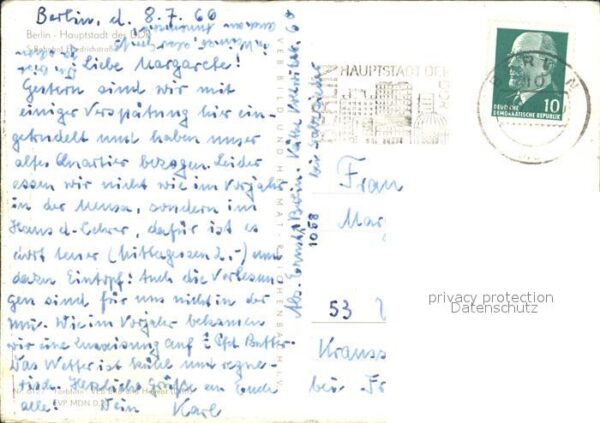 Berlin, d. 8.7.66
Berlin - Hauptstadt der DDR
S-Bahnhof Friedrichstraße
Liebe Margarete!
Gestern sind wir mit
einiger Verspätung hier ein-
getrudelt und haben unser
altes Quartier bezogen. Leider
essen wir nicht wie im Vorjahr
in der Mensa, sondern im
Haus d. Lehrer, dafür ist es
dort teuer (Mittagessen 2,-) und
dazu Eintopf! Auch die Vorlesun-
gen sind für uns nicht in der
Wie im Vorjahr bekamen
wir eine Zuweisung auf ½ Pfd Butter.
Das Wetter ist kühl und regne-
risch. Herzliche Grüße am Ende
alle! Dein Karl
EVP MDN 0,
VEB BILD UND HEIMAT REICHENBACH I. V.
Abs. Ernst, Berlin, Käthe
bei
1058
HAUPTSTADT DER
DDR
BERLIN
10
DEUTSCHE
DEMOKRATISCHE REPUBLIK
Frau
Mar
53
privacy protection
Datenschutz
Krauss
bei Fr